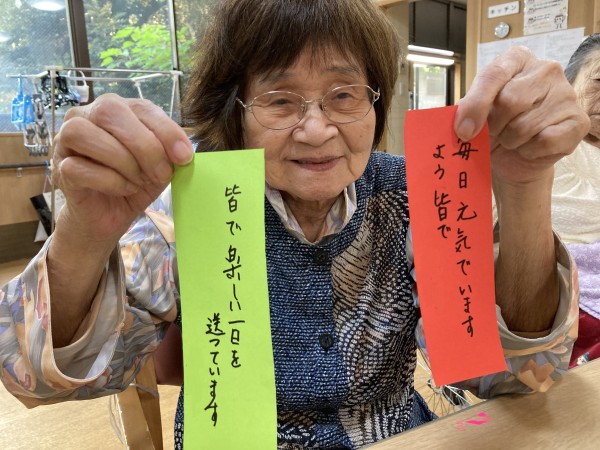 キッチン
毎日元気でいます
よう皆で
皆で楽しい一日を
送っています